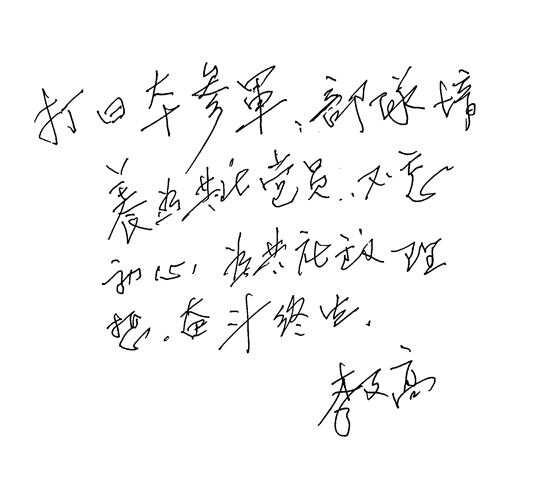 打日本参軍、部隊培
养当共产党员、不忘
初心,为共产主义理
想,奋斗终生.
李文高